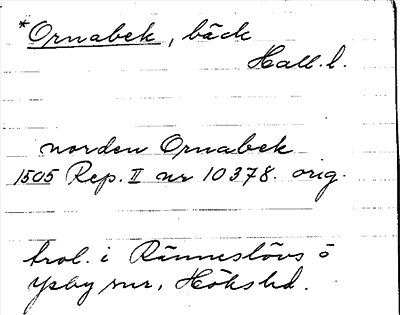 *Ornabek, bäck
Hall. l.
norden Ornabek
1505 Rep. II nr 10378. orig.
trol. i Ränneslövs o
Ysby snr, Höks hd.